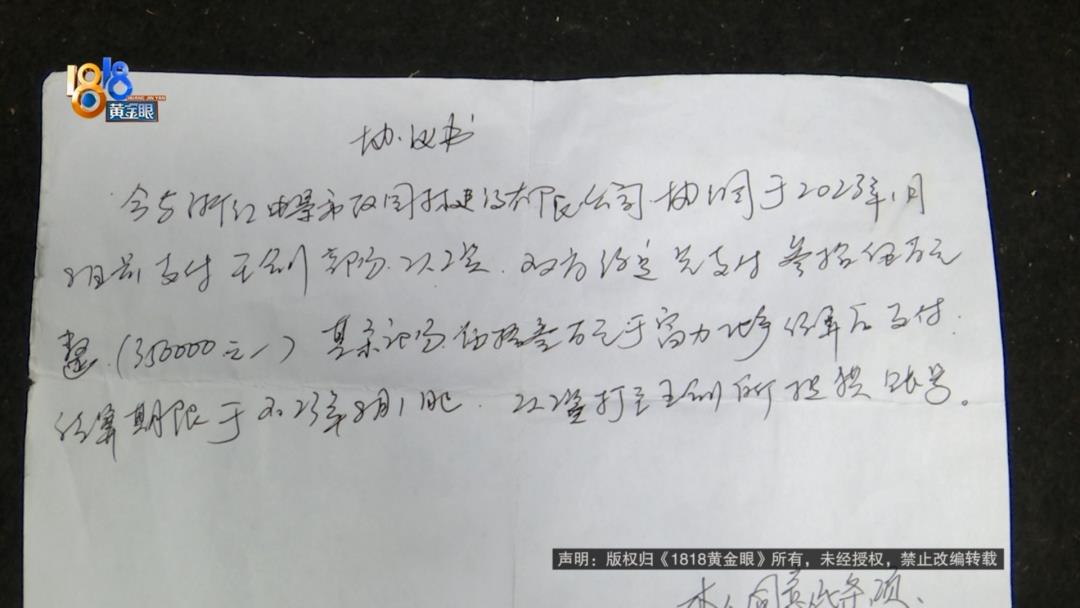 1818
黄金眼
HUANG JIN YAN
协议书
今与浙江 市政园林建设有限公司协调于2023年1月
日前支付王剑部分工资.双方约定先支付叁拾伍万元
整.(350000元)其余部分伍拾叁万元于富力 结算后支付.
结算期限于2023年8月1日.工资打至王剑所提供账号。
声明：版权归《1818黄金眼》所有，未经授权，禁止改编转载
本人同意